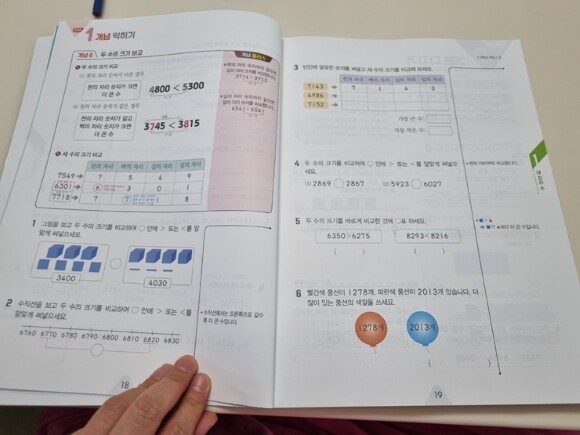 1 개념 익히기
개념 6 두 수의 크기 비교
두 수의 크기 비교
천의 자리 숫자가 다른 경우
천의 자리 숫자가 크면
더 큰 수
4800 < 5300
천의 자리 숫자가 같은 경우
천의 자리 숫자가 같고
백의 자리 숫자가 크면
더 큰 수
3745 < 3815
세 수의 크기 비교
천의 자리 백의 자리 십의 자리 일의 자리
7549 → 7 5 4 9
6301 → 6 3 0 1
7718 → 7 7 1 8
1 그림을 보고 두 수의 크기를 비교하여 ○ 안에 > 또는 <를 알
맞게 써넣으세요.
3400
4030
2 수직선을 보고 두 수의 크기를 비교하여 ○ 안에 > 또는 <를
알맞게 써넣으세요.
6760 6770 6780 6790 6800 6810 6820 6830
수직선에서는 오른쪽으로 갈수
록 더 큰 수입니다.
18
3 빈칸에 알맞은 숫자를 써넣고 세 수의 크기를 비교해 보세요.
천의 자리 백의 자리 십의 자리 일의 자리
7143 → 7 1 4 3
4986 →
7152 →
가장 큰 수
가장 작은 수
4 두 수의 크기를 비교하여 ○ 안에 > 또는 <를 알맞게 써넣으
세요.
(1) 2869 ○ 2867 (2) 5923 ○ 6027
5 두 수의 크기를 바르게 비교한 것에 ○표 하세요.
6350>6275 8293<8216
( ) ( )
6 빨간색 풍선이 1278개, 파란색 풍선이 2013개 있습니다. 더
많이 있는 풍선의 색깔을 쓰세요.
1278개 2013개
( )
1
네 자리 수
19